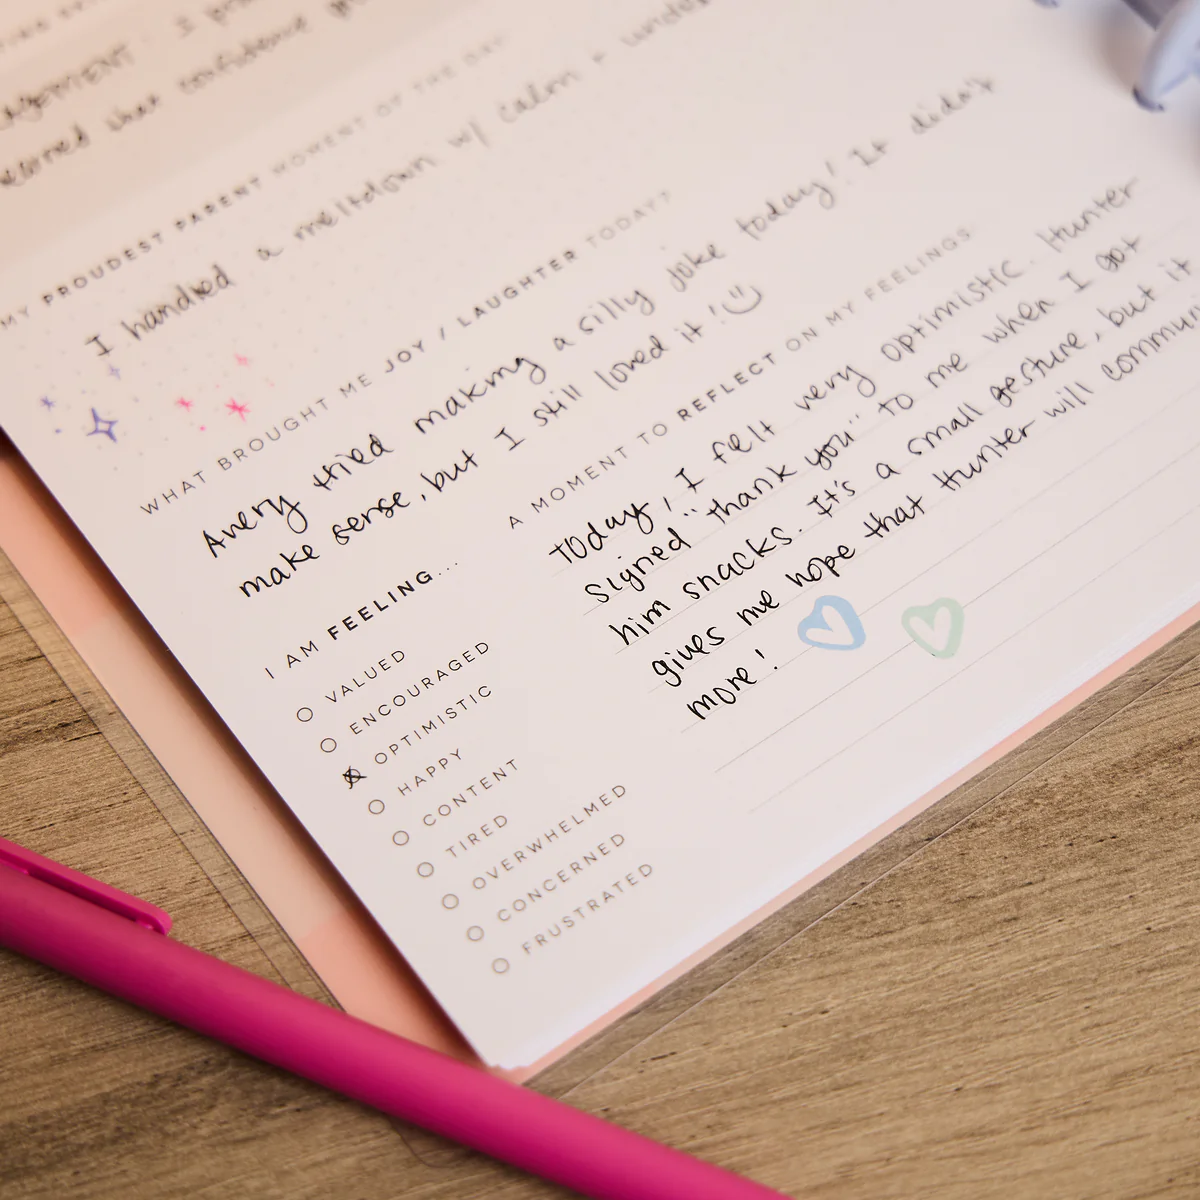 I
learned that confidence
MY PROUDEST PARENT MOMENT OF THE DAY
I handled a meltdown w/ calm +
WHAT BROUGHT ME JOY / LAUGHTER TODAY?
Avery tried making a silly joke today! It didn't
make sense, but I still loved it! :)
I AM FEELING...
VALUED
ENCOURAGED
OPTIMISTIC
HAPPY
CONTENT
TIRED
OVERWHELMED
CONCERNED
FRUSTRATED
A MOMENT TO REFLECT ON MY FEELINGS
Today, I felt very optimistic. Hunter
signed "thank you" to me when I got
him snacks. It's a small gesture, but it
gives me hope that Hunter will commun
more!